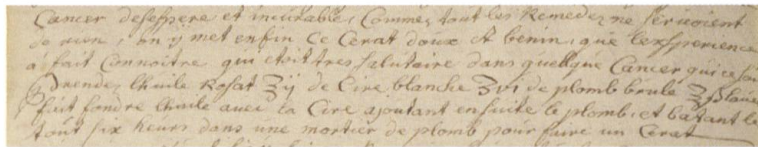 Cancer desespere et incurable, Comme tout les Remedez ne seruoient
de rien, on y met enfin Ce Cerat doux et benin, que lexsperience
a fait Connoitre qui etoit tres salutaire dans quelque Cancer qui ce soi
prendez lhuile Rosat ʒij de Cire blanche ʒvi de plomb brule laue
fait fondre lhuile avec la Cire ajoutant ensuite le plomb, et batant le
tout six heurs dans une mortier de plomb pour faire un Cerat